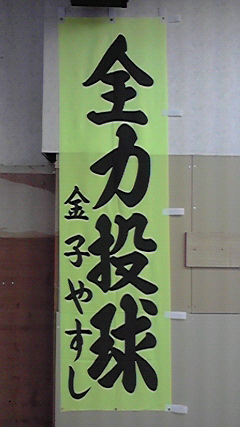 全力投球
金子やすし